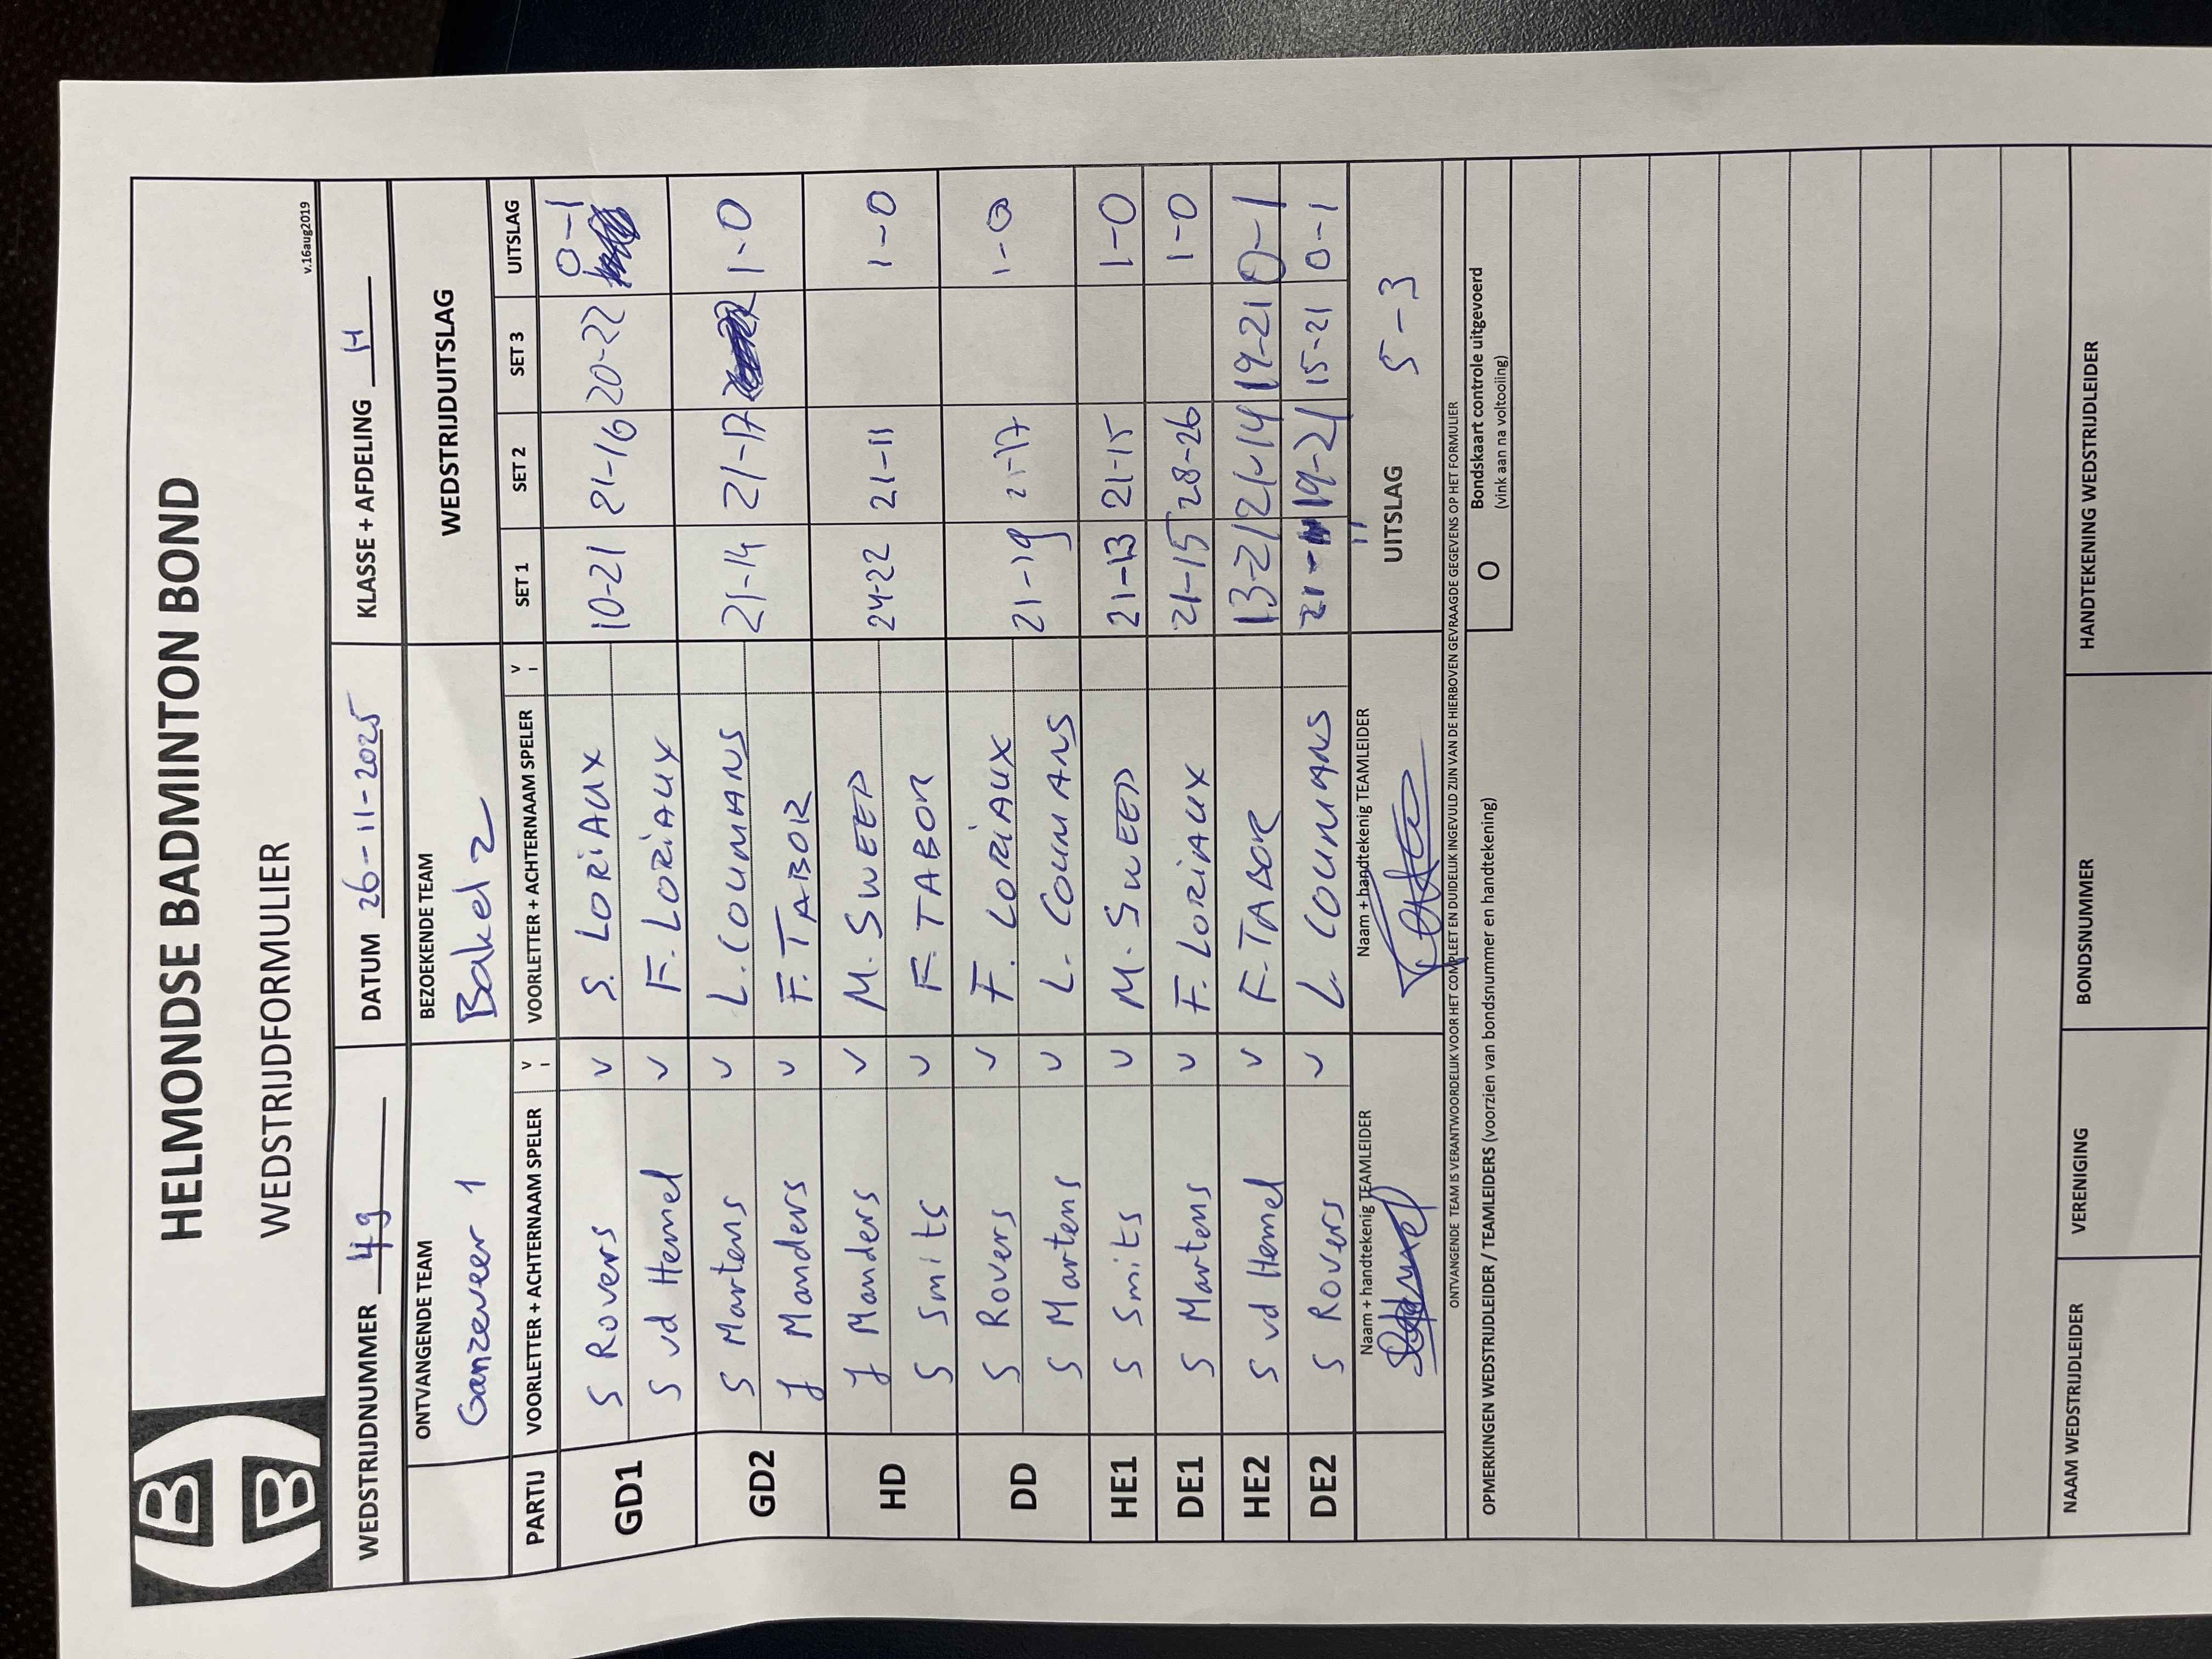 HELMONDSE BADMINTON BOND
WEDSTRIJDFORMULIER
v.16aug2019
WEDSTRIJDNUMMER 49 DATUM 26-11-2025 KLASSE + AFDELING H
ONTVANGENDE TEAM BEZOEKENDE TEAM WEDSTRIJDUITSLAG
Ganzeveer 1 Bakel 2
PARTIJ VOORLETTER + ACHTERNAAM SPELER V I VOORLETTER + ACHTERNAAM SPELER V I SET 1 SET 2 SET 3 UITSLAG
GD1 S Rovers v S. LORIAUX 10-21 21-16 20-22 0-1
S vd Hemel v F. LORIAUX
GD2 S Martens v L. COUMANS 21-14 21-17 1-0
J Manders v F. TABOR
HD J Manders v M. SWEEP 24-22 21-11 1-0
S Smits v F. TABOR
DD S Rovers v F. LORIAUX 21-19 21-17 1-0
S Martens v L. COUMANS
HE1 S Smits v M. SWEEP 21-13 21-15 1-0
DE1 S Martens v F. LORIAUX 21-15 28-26 1-0
HE2 S vd Hemel v F. TABOR 13-21 21-14 19-21 0-1
DE2 S Rovers v L. COUMANS 21-11 19-21 15-21 0-1
Naam + handtekenig TEAMLEIDER Naam + handtekenig TEAMLEIDER UITSLAG 5-3
ONTVANGENDE TEAM IS VERANTWOORDELIJK VOOR HET COMPLEET EN DUIDELIJK INGEVULD ZIJN VAN DE HIERBOVEN GEVRAAGDE GEGEVENS OP HET FORMULIER
OPMERKINGEN WEDSTRIJDLEIDER / TEAMLEIDERS (voorzien van bondsnummer en handtekening) O Bondskaart controle uitgevoerd
(vink aan na voltooiing)
NAAM WEDSTRIJDLEIDER VERENIGING BONDSNUMMER HANDTEKENING WEDSTRIJDLEIDER